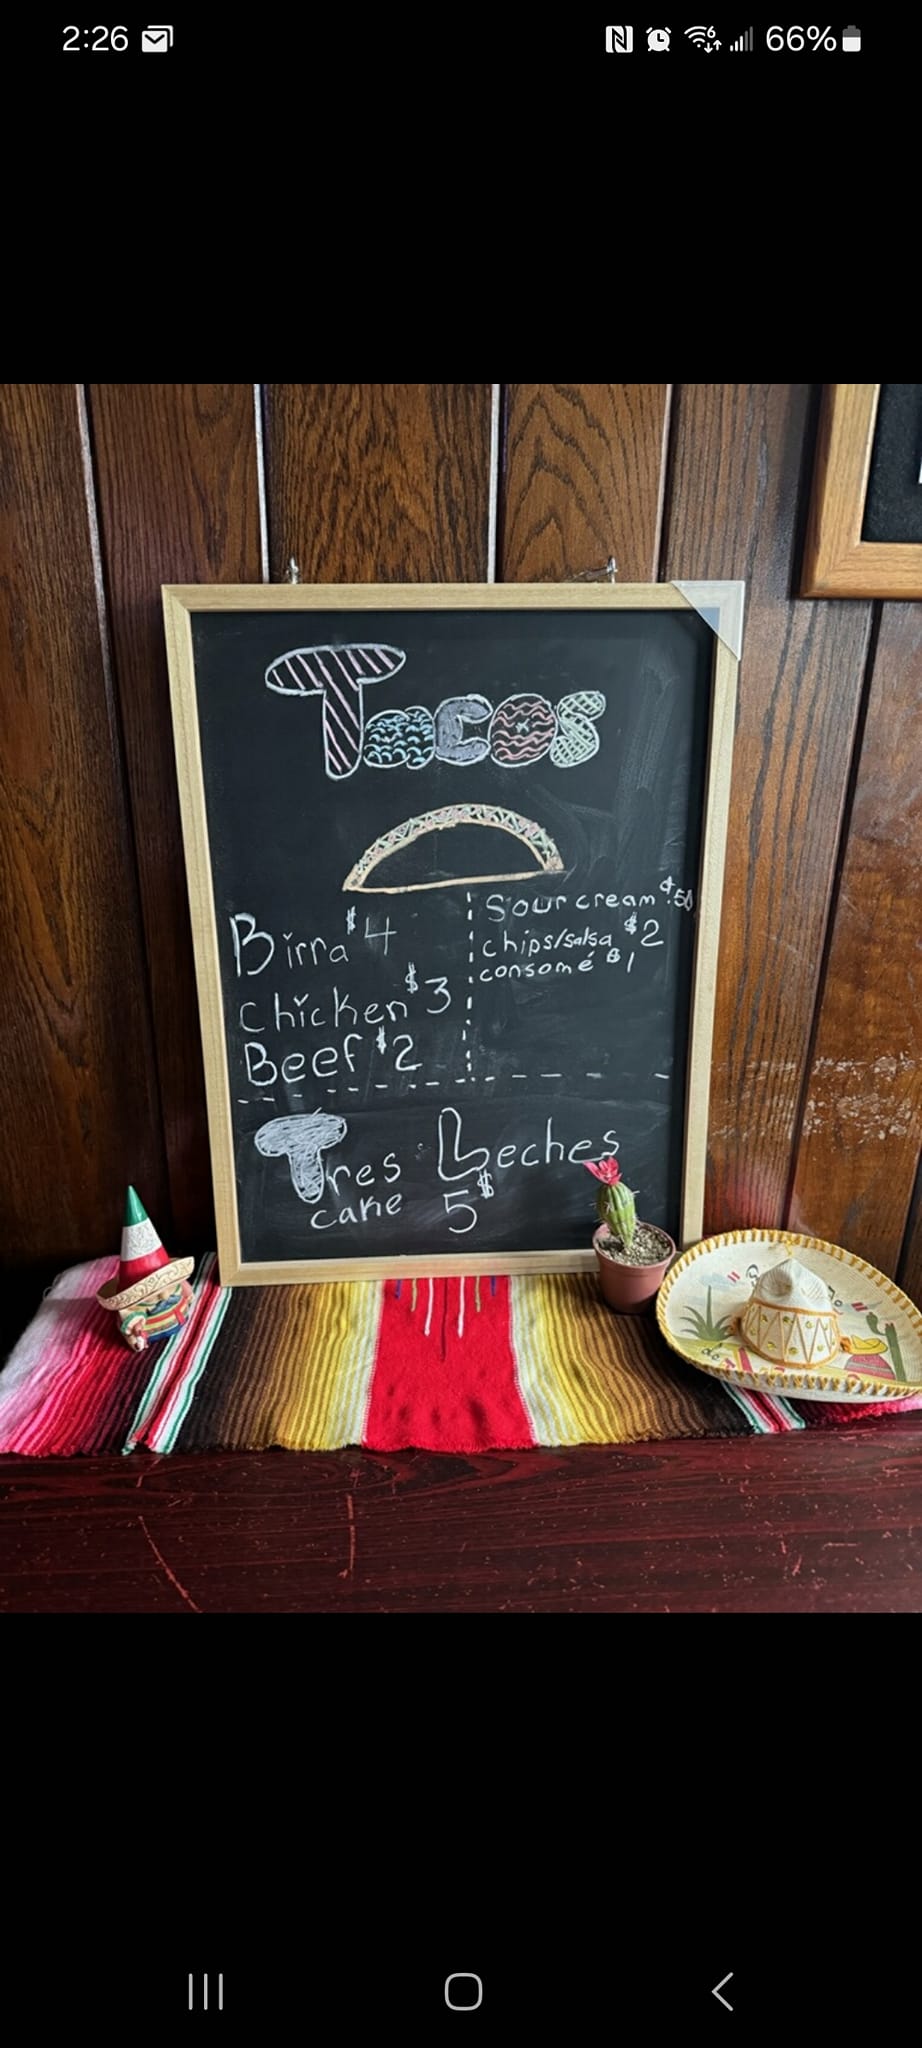 2:26
66%
Tacos
Birra $4
Chicken $3
Beef $2
Sour cream $.50
chips/salsa $2
consomé $1
Tres Leches
cake 5$